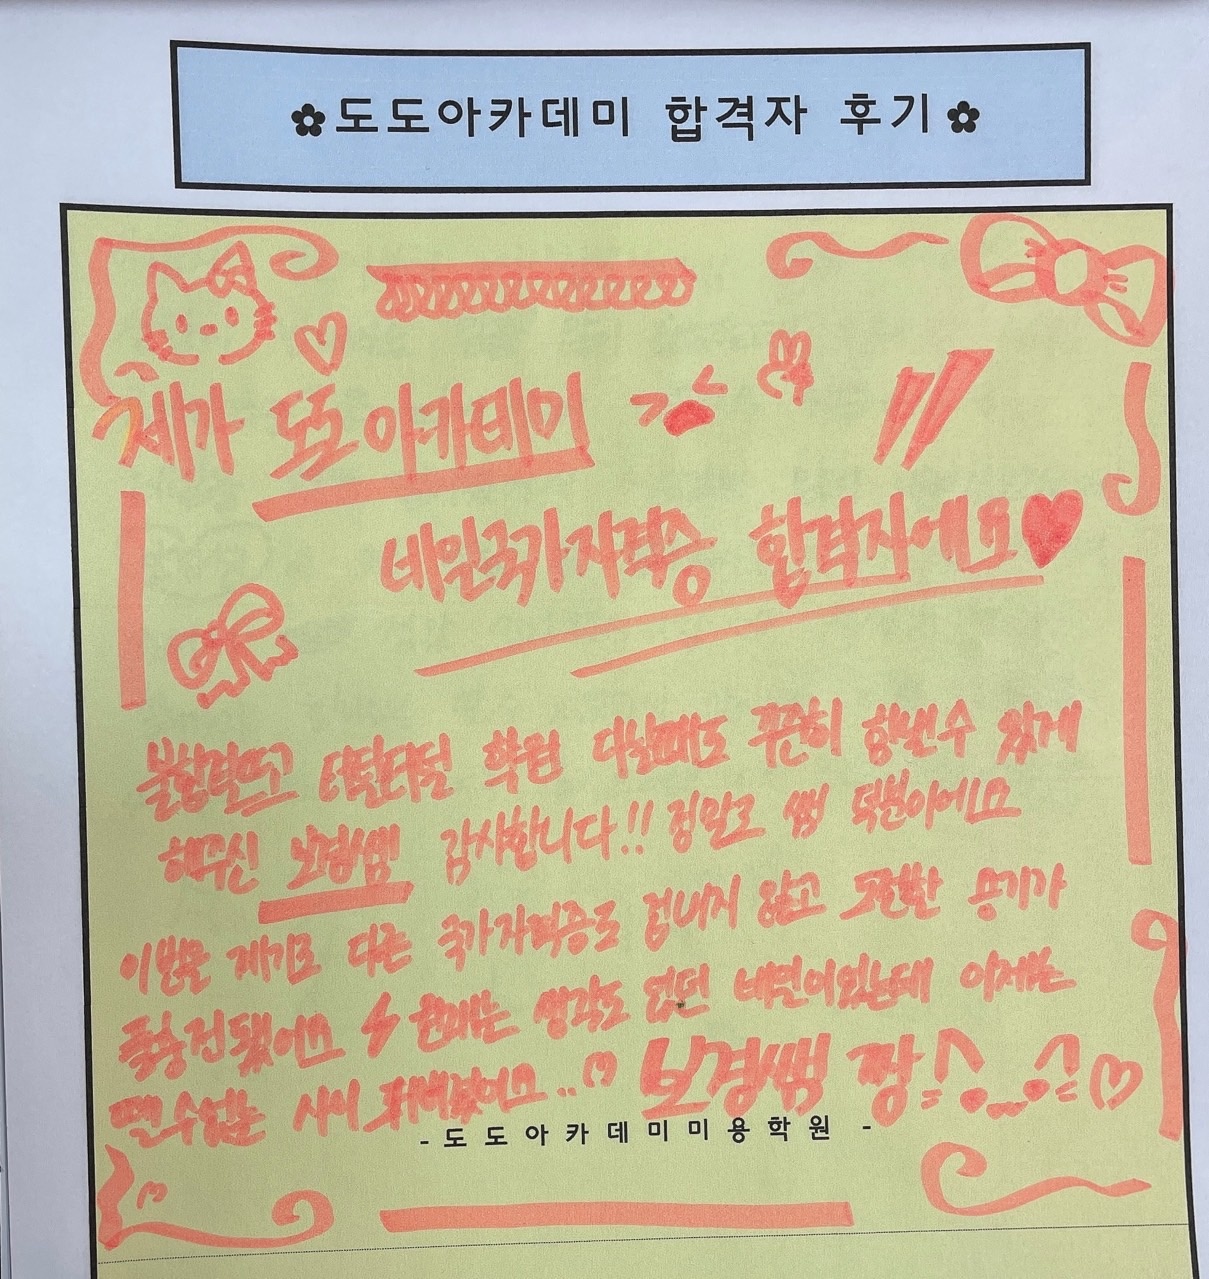 ✿도도아카데미 합격자 후기✿
제가 도도아카데미
네일국가자격증 합격자에요♥
불합격뜨고 터덜터덜 학원 다닐때도 꾸준히 힘낼수 있게
해주신 보경쌤 감사합니다!! 정말로 쌤 덕분이에요
이번을 계기로 다른 국가자격증도 겁내지 않고 도전할 용기가
풀충전됐어요 원래는 생각도 없던 네일이었는데 이제는
뗄수없는 사이 되어 버렸어요.. 보경쌤 짱
-도도아카데미미용학원 -